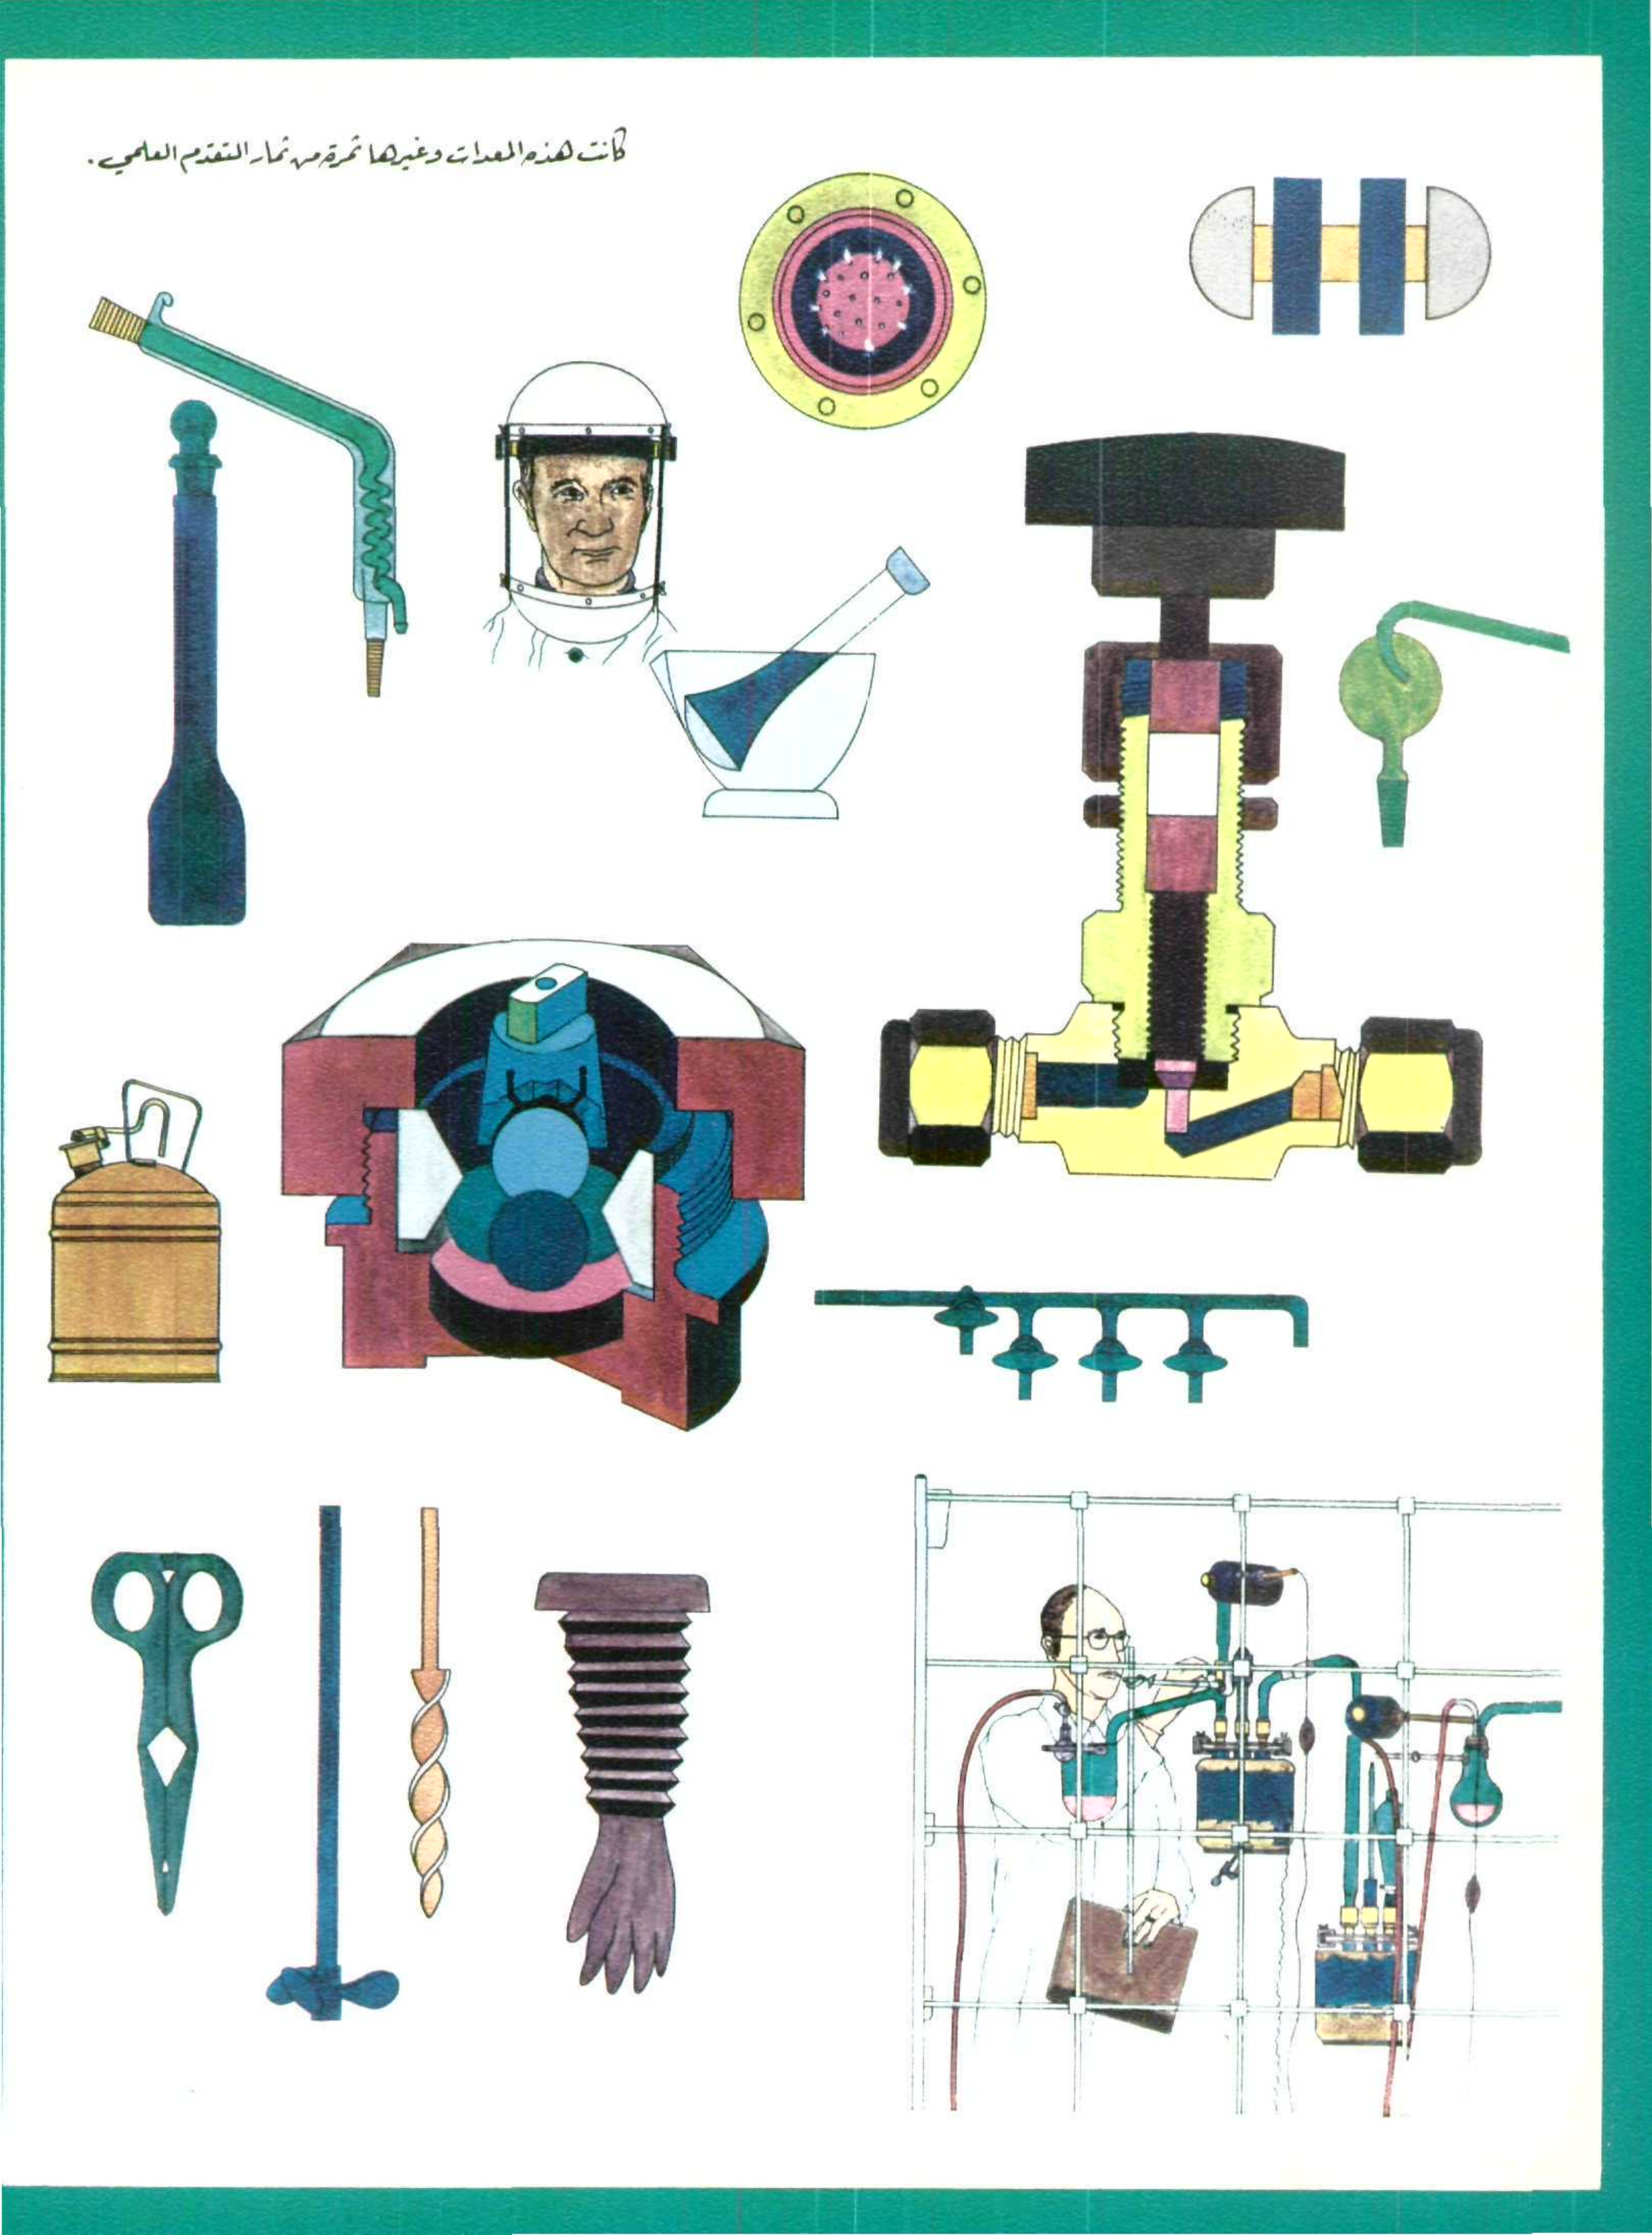 كانت هذه المعدات وغيرها ثمرة من ثمار التقدم العلمي .